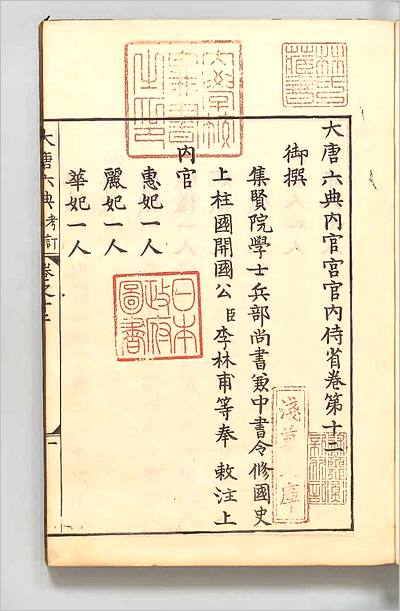 大唐六典內官宮官內侍省卷第十二
御撰
集賢院學士兵部尚書兼中書令修國史
上柱國開國公臣李林甫等奉 敕注上
內官
惠妃一人
麗妃一人
華妃一人
大唐六典考訂 卷之十二
一
林氏藏書
日本政府圖書
淺草文庫